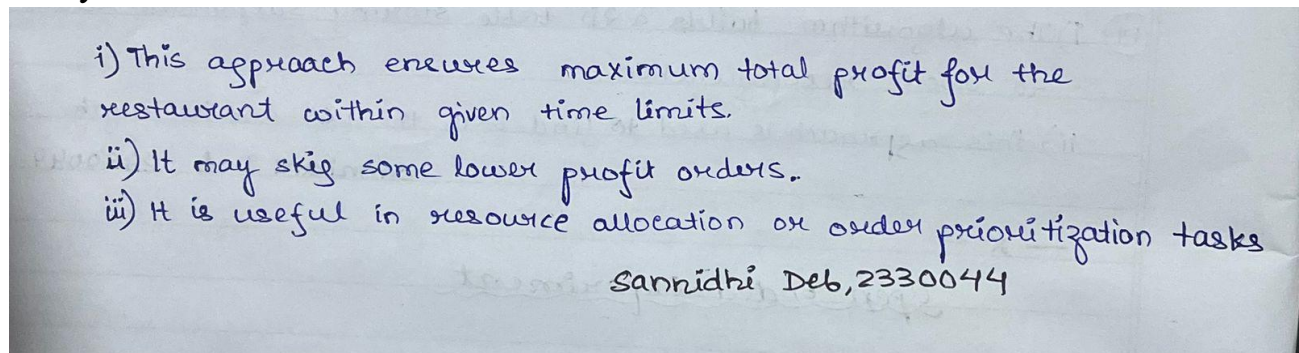 i) This approach ensures maximum total profit for the
restaurant within given time limits.
ii) It may skip some lower profit orders.
iii) It is useful in resource allocation or order prioritization tasks
Sannidhi Deb, 2330044